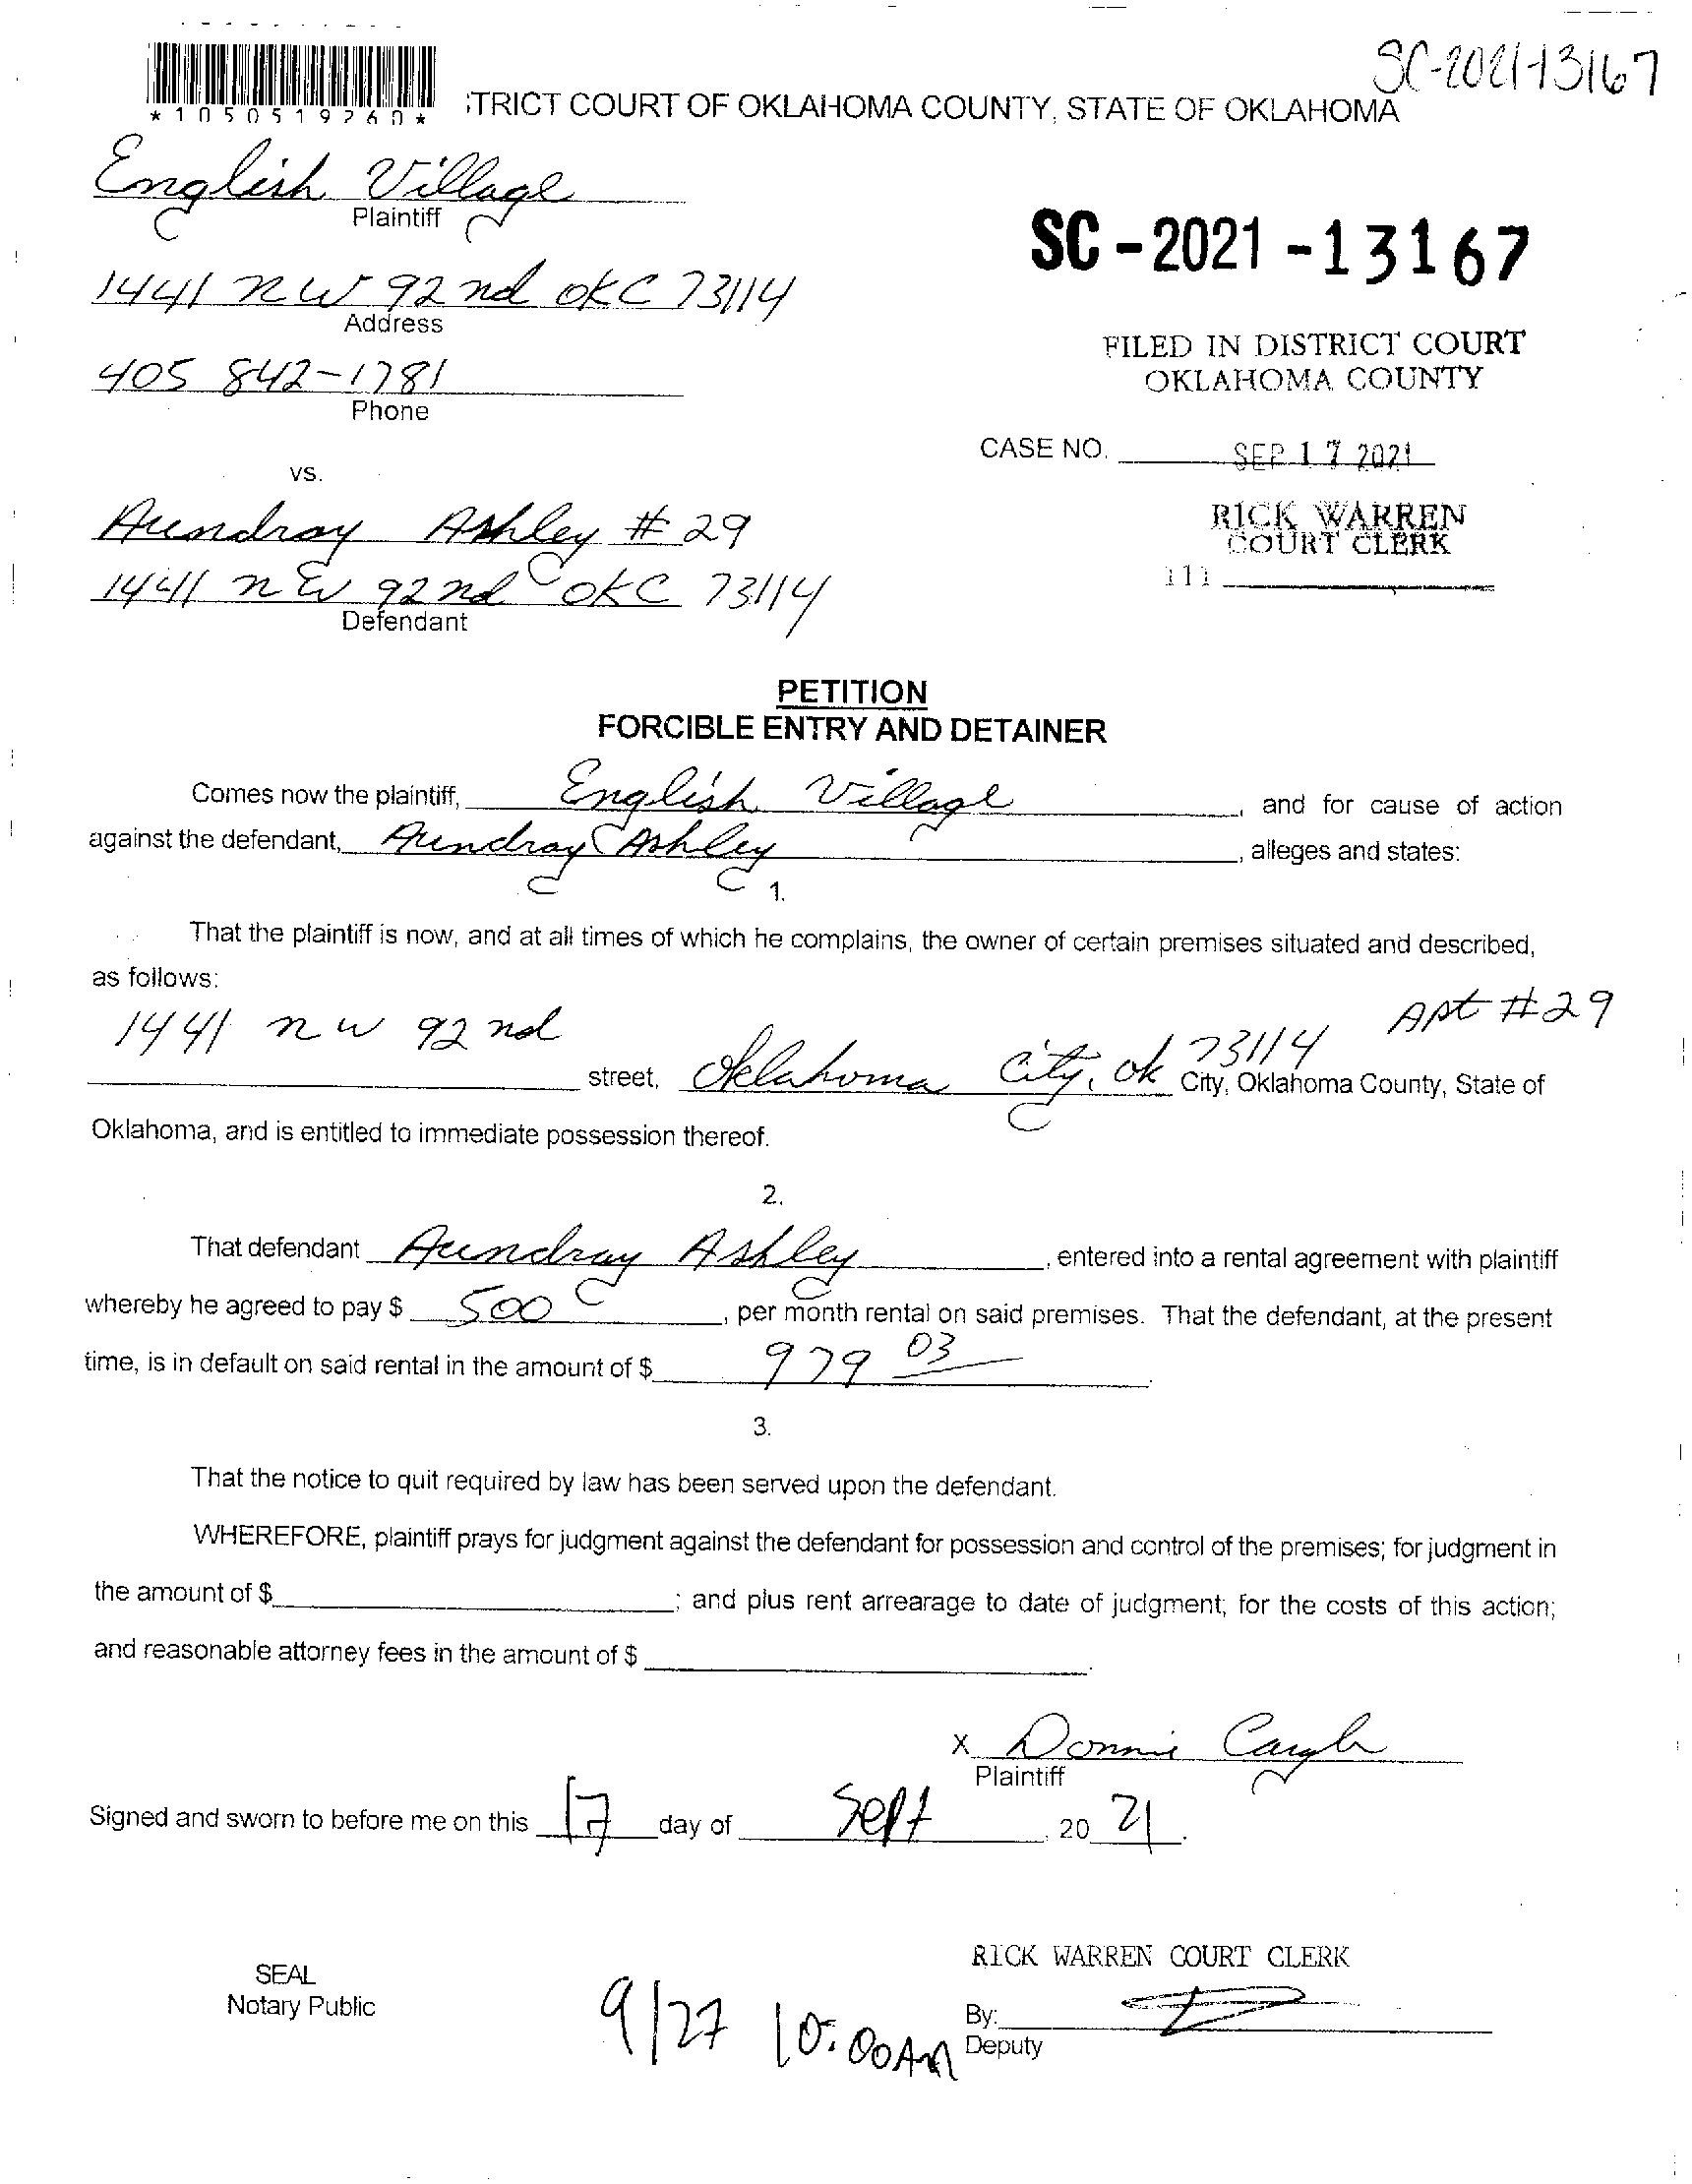 SC-2021-13167
*1050519260*
TRICT COURT OF OKLAHOMA COUNTY, STATE OF OKLAHOMA
English Village
Plaintiff
SC-2021-13167
1441 NW 92nd OKC 73114
Address
FILED IN DISTRICT COURT
OKLAHOMA COUNTY
405 842-1781
Phone
CASE NO.
SEP 17 2021
vs.
RICK WARREN
COURT CLERK
Aundray Ashley #29
111
1441 NW 92nd OKC 73114
Defendant
PETITION
FORCIBLE ENTRY AND DETAINER
Comes now the plaintiff, English Village, and for cause of action
against the defendant, Aundray Ashley, alleges and states:
1.
That the plaintiff is now, and at all times of which he complains, the owner of certain premises situated and described,
as follows:
1441 NW 92nd Apt #29
street, Oklahoma City, OK 73114 City, Oklahoma County, State of
Oklahoma, and is entitled to immediate possession thereof.
2.
That defendant Aundray Ashley, entered into a rental agreement with plaintiff
whereby he agreed to pay $ 500, per month rental on said premises. That the defendant, at the present
time, is in default on said rental in the amount of $ 979 03.
3.
That the notice to quit required by law has been served upon the defendant.
WHEREFORE, plaintiff prays for judgment against the defendant for possession and control of the premises; for judgment in
the amount of $ ; and plus rent arrearage to date of judgment; for the costs of this action;
and reasonable attorney fees in the amount of $ .
X Donnie
Plaintiff
Signed and sworn to before me on this 17 day of Sept, 20 21.
RICK WARREN COURT CLERK
SEAL
Notary Public
9/27 10:00AM
By:
Deputy